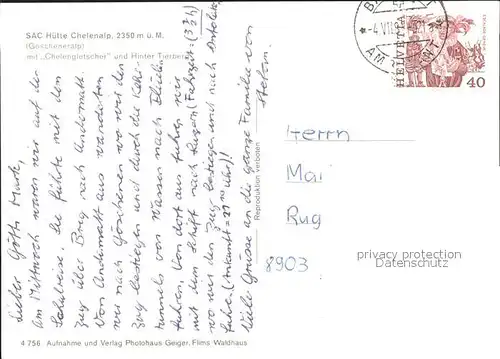 SAC Hütte Chelenalp, 2350 m ü. M.
(Göscheneralp)
mit "Chelengletscher" und Hinter Tierberg
Lieber Götti Mark,
Am Mittwoch waren wir auf der
Schulreise. Sie führte mit dem
Zug über Brug nach Andermatt.
Von Andermatt aus wanderten
wir nach Göschenen wo wir den
Zug bestiegen und durch die Kehr-
tunnels von Wassen nach Flüelen
fuhren. Von dort aus fuhren wir
mit dem Schiff nach Luzern (Fahrzeit =
wo wir den Zug bestiegen und nach
fuhren. (Ankunft = Uhr)!!
Viele Grüsse an die ganze Familie von
Reproduktion verboten
HELVETIA
40
Herrn
Mai
Rug
8903
privacy protection
Datenschutz
4 756 Aufnahme und Verlag Photohaus Geiger, Flims-Waldhaus